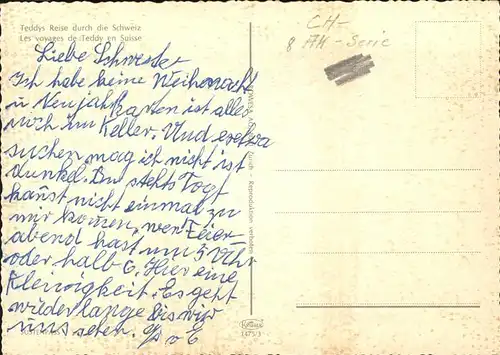 Teddys Reise durch die Schweiz
Les voyages de Teddy en Suisse
CH-
8 AK-Serie
Liebe Schwester
Ich habe keine Weihnacht
u Neujahrkarten ist alles
noch im Keller. Und extra
suchen mag ich nicht ist
dunkel. Du stehts Togt
kanst nicht einmal zu
mir komen, wen Feier-
abend hast um 5 Uhr
oder halb 6. Hier eine
Kleinigkeit. Es geht
wieder lange bis wir
uns sehen.
Reproduktion verboten
1475/3